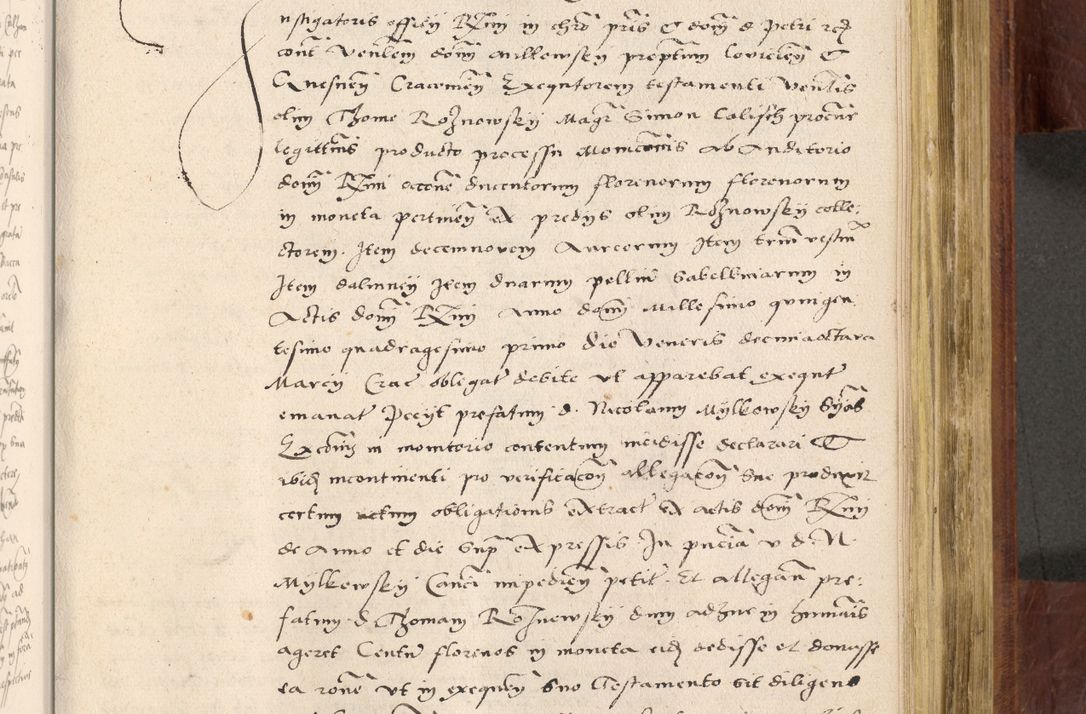 nstigatoris officij Rzmi in chro pris et domi d Petri rcz
cont Venlem domi Milkowskij preptum
Cracovien Exequtorem testamenti Ventis
olim Thome Roznowskij Magr Simon Calisch procur
legittimus producto processu Monitionis ab Auditorio
domi Rzmi accone ducentorum florenorum florenorum
in moneta pertinen ex predijs olim Roznowskij colle:
ctorem. Item decemnovem Aureorum Item trium vestiu
Item Item duarum pellium Sabellinarum in
Actis domi Rzmi Anno domi Millesimo quingen
tesimo quadragesimo primo die Veneris decimaoctava
Marcij Crac obligat debite ut apparebat exequte
emanat prefatum d. Nicolaum Mylkowskij
Excom in monitorio contentum incidisse declarari Et
ibidem incontinenti pro verificacon allegacon sue produxit
certum actum obligationis extract ex actis domi Rzmi
de Anno et die sup expressis In pncia v d. N.
Mylkowskij Canci impedien petit. Et allegan pre:
fatum d Thomam Roznowskij dum adhuc in humanis
ageret Centu florenos in moneta eidem dedisse et donasse
ea rone ut in exequen suo Testamento sit diligens